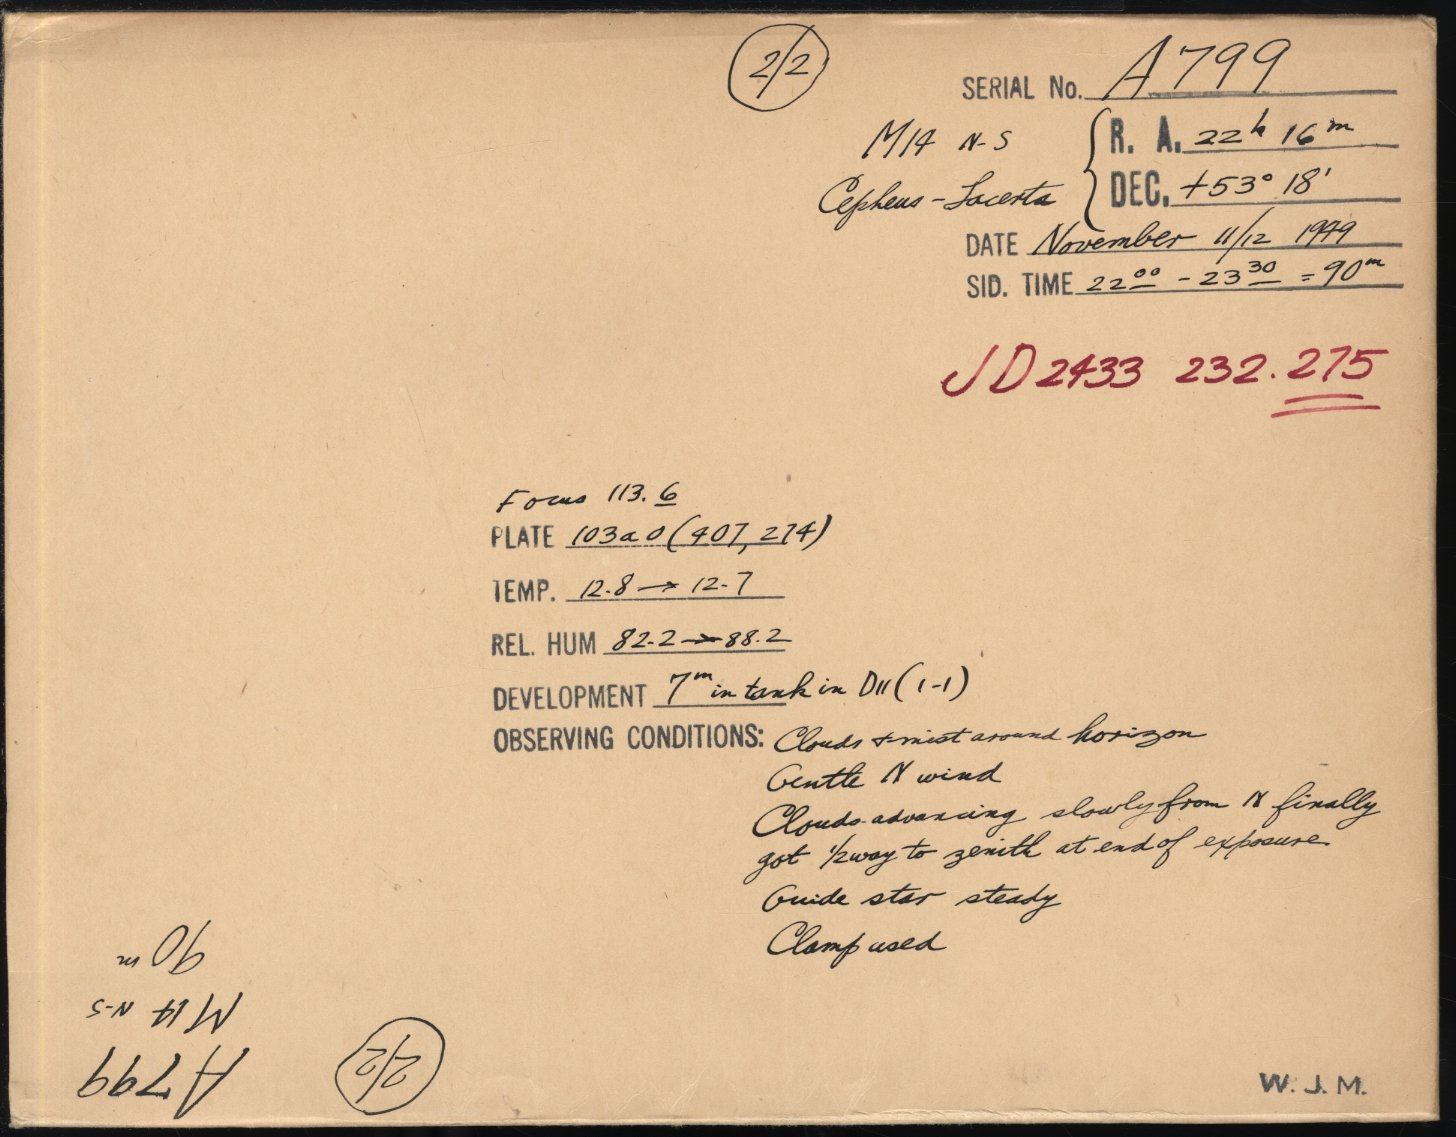 2/2
SERIAL No. A799
M14 N-S
R. A. 22h 16m
Cepheus-Lacerta
DEC. +53° 18'
DATE November 11/12 1949
SID. TIME 22 00 - 23 30 = 90m
JD 2433 232.275
Focus 113.6
PLATE 103a O (407, 274)
TEMP. 12.8 → 12.7
REL. HUM 82.2 → 88.2
DEVELOPMENT 7m in tank in D11 (1-1)
OBSERVING CONDITIONS: Clouds + mist around horizon
Gentle N wind
Clouds advancing slowly from N finally
got 1/2way to zenith at end of exposure
Guide star steady
Clamp used
A799
M14 N-S
90m
2/2
W. J. M.